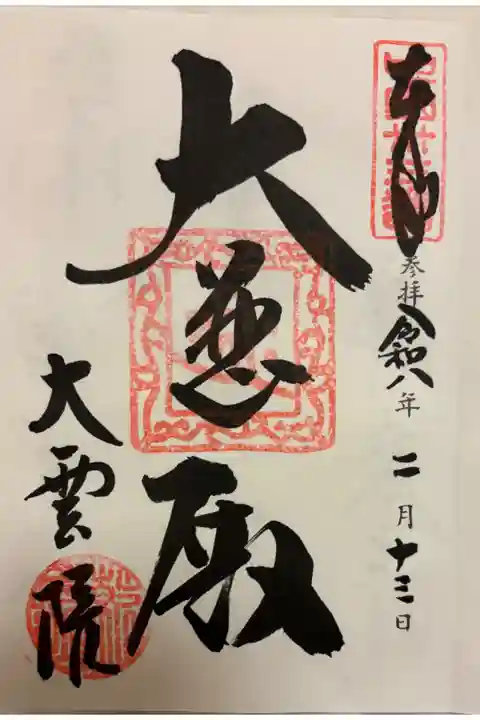 奉拝
参拝
令和八年 二月十三日
大慈殿
大雲院